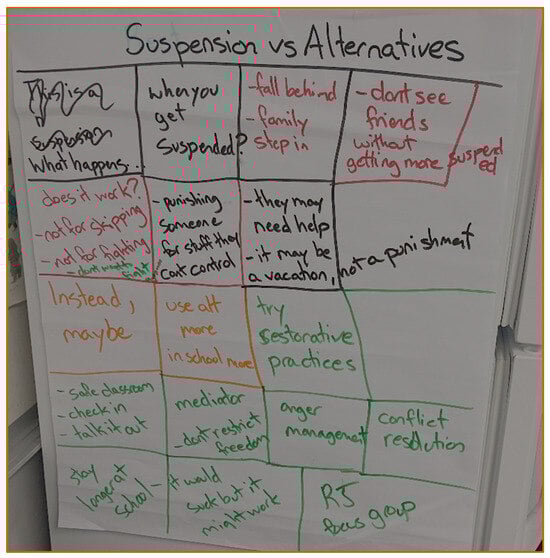 Suspension vs Alternatives
What happens...
when you
get
suspended?
-fall behind
-family
step in
-dont see
friends
without
getting more suspended
does it work?
-not for skipping
-not for fighting
-punishing
someone
for stuff they
cant control
-they may
need help
-it may be
a vacation, not a punishment
Instead,
maybe
use att
more
in school more
try
restorative
practices
-safe classroom
-check in
-talk it out
mediator
-dont restrict
freedom
anger
management
conflict
resolution
stay
longer at
school-
it would
suck but it
might work
RJ
focus group